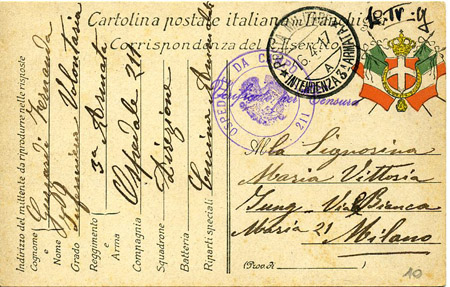 Cartolina postale italiana in franchigia
Corrispondenza del R. Esercito
INTENDENZA 3ª ARMATA
6.4.17
A
OSPEDALE DA CAMPO
211
Verificato per Censura
Alla Signorina
Maria Vittoria
Jung - Via Bianca
Maria 21 Milano
(Prov. di
10
Indirizzo del mittente da riprodurre nelle risposte
Cognome
e
Nome
Grado Infermiera Volontaria
Reggimento 3ª Armata
e
Arma
Compagnia Ospedale 211
Squadrone Direzione
Batteria
Riparti speciali